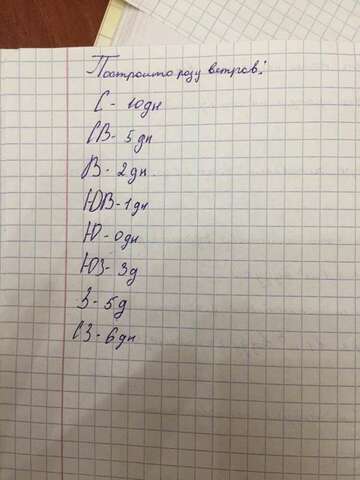 Построить розу ветров:
С - 10дн
СВ - 5дн
В - 2дн.
ЮВ - 1дн
Ю - 0дн
ЮЗ - 3д
З - 5д
СЗ - 6дн